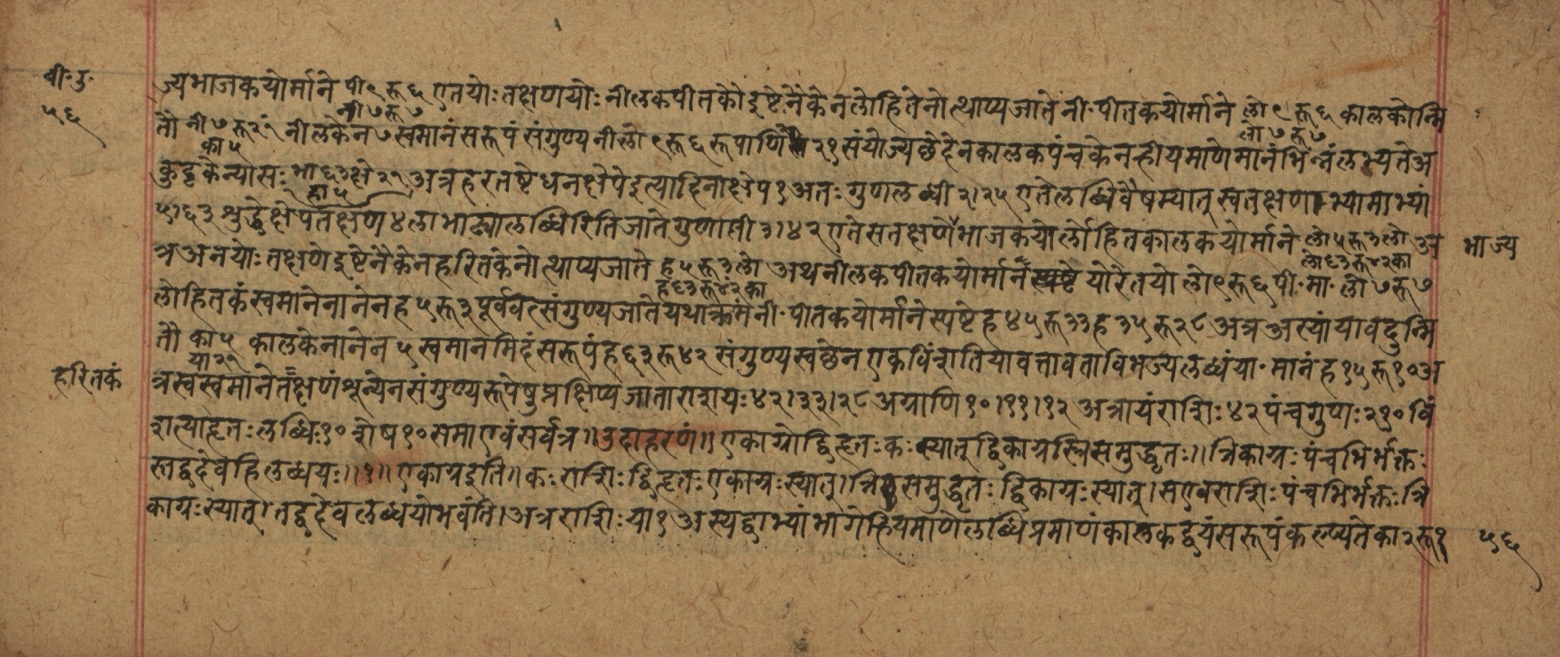 बी॰उ॰
५६
ज्यभाजकयोर्माने पी९रू६ एतयोः तक्षणयोः नीलकपीतकौ इष्टेनैकेन लोहितेनोत्थाप्य जाते नी॰पीतकयोर्माने लो९रू६ कालकोन्मि
नी७रू७ लो७रू७
तौ नी७रू२१ं नीलकेन ७ स्वमानं सरूपं संगुण्य नीलो ९रू६ रूपाणि २१ संयोज्य छेदेन कालकपंचकेन ह्रीयमाणे मानं भिन्नं लभ्यते अ
का५
कुट्टकेन्यासः भा६३क्षे२१ अत्र हरतष्टे धनक्षेपे इत्यादिना क्षेप १ अतः गुणलब्धी २।२५ एते लब्धिवैषम्यात् स्वतक्षणाभ्यामाभ्यां
हा५
५।६३ शुद्धे क्षेपतक्षण ४ लाभाढ्या लब्धिरिति जाते गुणाप्ती ३।४२ एते सतक्षणे भाजकयोर्लोहितकालकयोर्माने लो५रू३लो अ
भाज्य
लो६३रू४२का
त्र अनयोः तक्षणे इष्टेनैकेन हरितकेनोत्थाप्य जाते ह५रू३लो अथ नीलकपीतकयोर्माने स्पष्टे योरेतयो लो९रू६पी॰मा॰लो७रू७
ह६३रू४२का
लोहितकं स्वमानेनानेन ह५रू३ पूर्ववत्संगुण्य जाते यथाक्रमं नी॰पीतकयोर्माने स्पष्टे ह४५रू३३ह३५रू२८ अत्र अस्यां यावदुन्मि
तौ का५ कालकेनानेन ५ स्वमानमिदं सरूपं ह६३रू४२ संगुण्य स्वछेन एकविंशतियावत्तावता विभज्य लब्धं या॰मानं ह१५रू१० अ
या२१
हरितकं
त्र स्वस्वमाने तक्षणं शून्येन संगुण्य रूपेषु प्रक्षिप्य जाता राशयः ४२।३३।२८ अग्राणि १०।११।१२ अत्रायं राशिः ४२ पंचगुणाः २१० विं
शत्याहृतः लब्धिः १० शेष १० समा एवं सर्वत्र॥ उदाहरणं॥ एकाग्रो द्विहृतः कः स्यात् द्विकाग्रस्त्रिसमुद्धृतः॥ त्रिकाग्रः पंचभिर्भक्तः
स्तद्वदेव हि लब्धयः॥१॥ एकाग्र इति॥ कः राशिः द्विहृतः एकाग्रः स्यात्। त्रिसमुद्धृतः द्विकाग्रः स्यात्। स एव राशिः पंचभिर्भक्तः त्रि
काग्रः स्यात्। तद्वदेव लब्धयो भवंति। अत्र राशिः या१ अस्य द्वाभ्यां भागे ह्रियमाणे लब्धिप्रमाणं कालकद्वयं सरूपं कल्प्यते का२रू१
५६